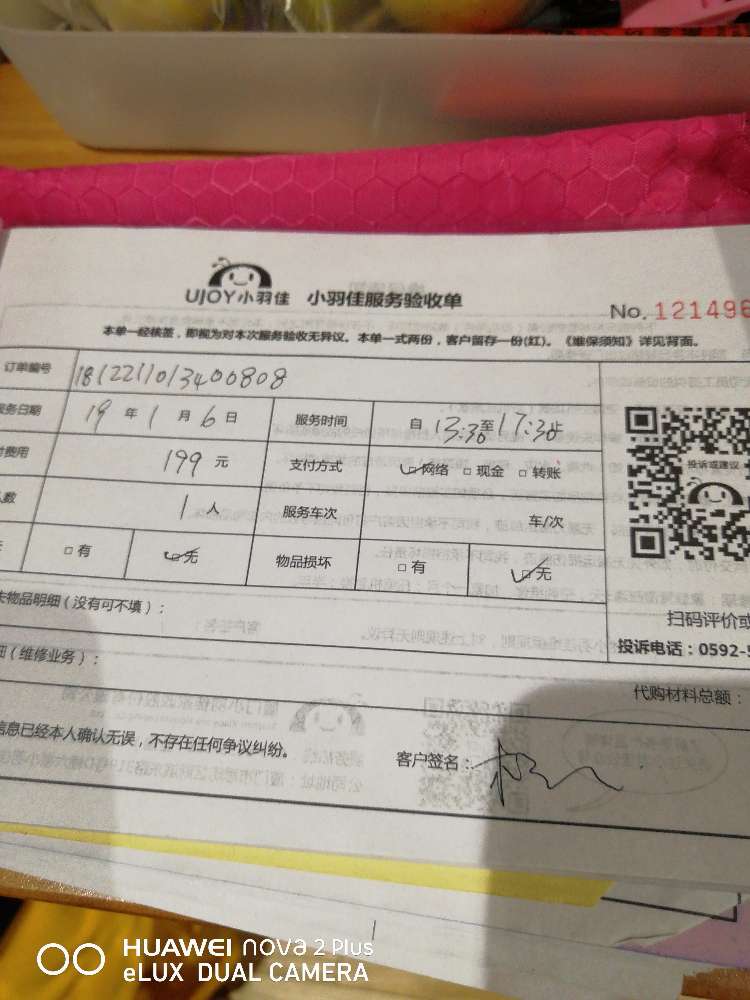 UJOY小羽佳 小羽佳服务验收单
No. 121496
本单一经核签，即视为对本次服务验收无异议。本单一式两份，客户留存一份(红)。《维保须知》详见背面。
订单编号 1812211013400808
务日期 19 年 1 月 6 日 服务时间 自 13:30 至 17:30 止
费用 199 元 支付方式 网络 现金 转账
投诉或建议
人数 1 人 服务车次 车/次
有 无 物品损坏 有 无
物品明细（没有可不填）：
扫码评价或
（维修业务）：
投诉电话：0592-5
代购材料总额：
信息已经本人确认无误，不存在任何争议纠纷。 客户签名：
HUAWEI nova 2 Plus
eLUX DUAL CAMERA